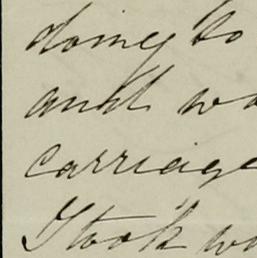 doing so
and wo
carriage
I took wo